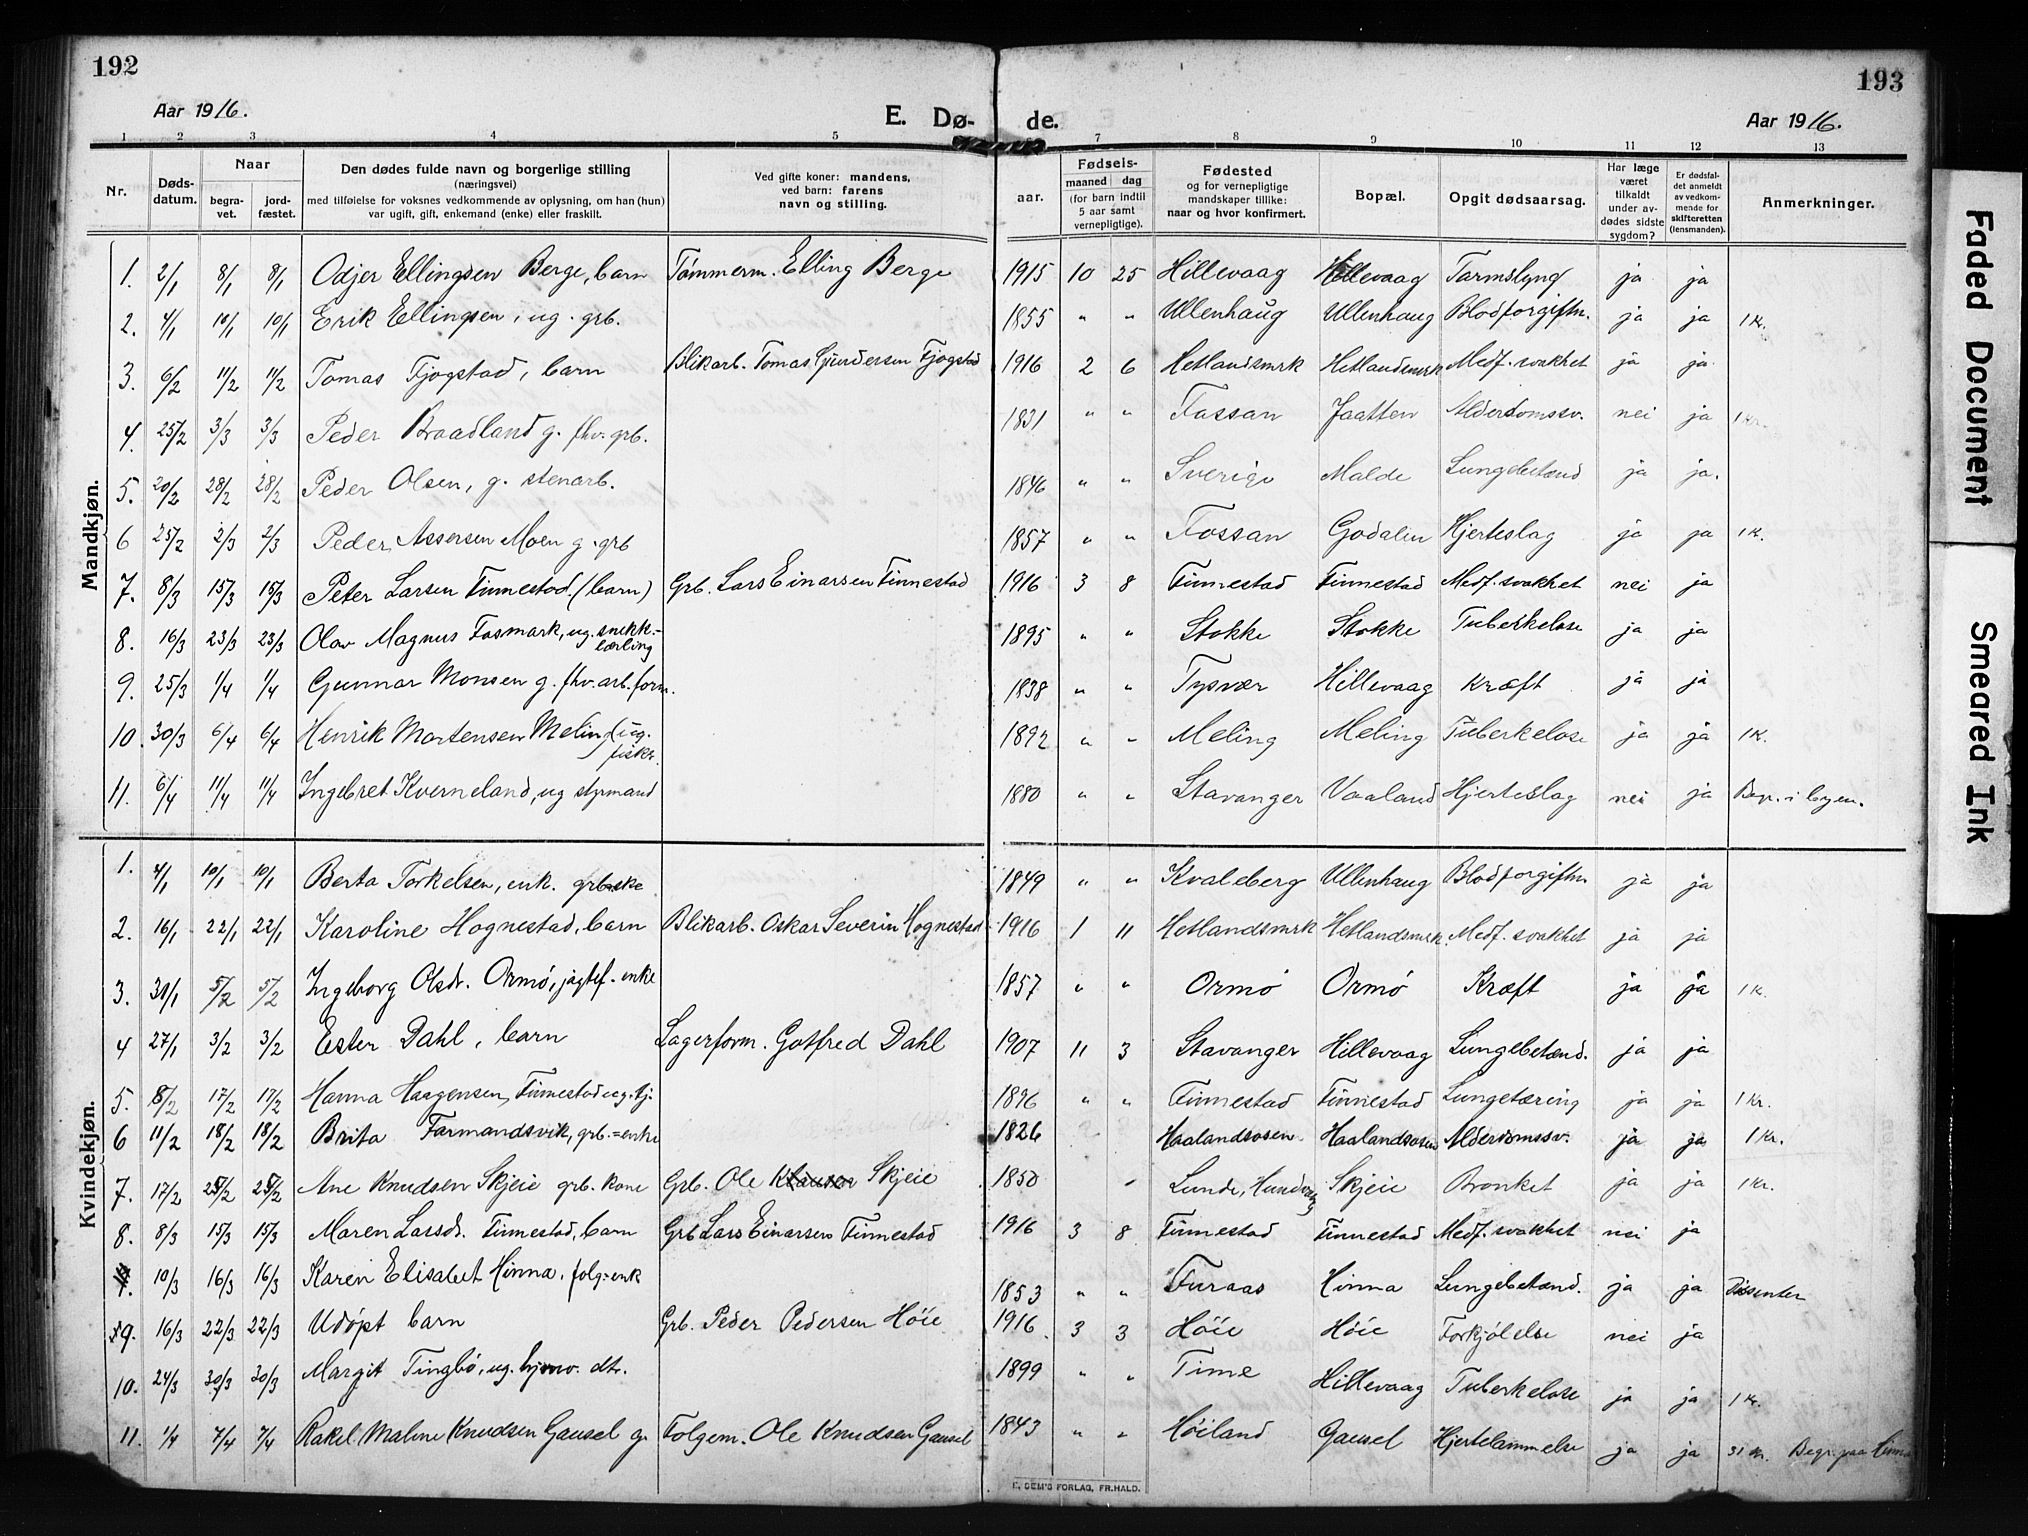 192
193
Aar 1916.
E. Dø-
de.
Aar 1916.
1 2 3 4 5 7 8 9 10 11 12 13
Nr.
Døds-
datum.
Naar
begra-
vet.
jord-
fæstet.
Den dødes fulde navn og borgerlige stilling
(næringsvei)
med tilføielse for voksnes vedkommende av oplysning, om han (hun)
var ugift, gift, enkemand (enke) eller fraskilt.
Ved gifte koner: mandens,
ved barn: farens
navn og stilling.
Fødsels-
aar.
maaned dag
(for barn indtil
5 aar samt
vernepligtige).
Fødested
og for vernepligtige
mandskaper tillike:
naar og hvor konfirmert.
Bopæl.
Opgit dødsaarsag.
Har læge
været
tilkaldt
under av-
dødes sidste
sygdom?
Er dødsfal-
det anmeldt
av vedkom-
mende for
skifteretten
(lensmanden).
Anmerkninger.
Mandkjøn.
1. 2/1 8/1 8/1 Odjer Ellingsen Berge, barn Tømmerm. Elling Berge 1915 10 25 Hillevaag Hillevaag Tarmslyng ja ja
2. 4/1 10/1 10/1 Erik Ellingsen, ug. grb. 1855 " " Ullenhaug Ullenhaug Blodforgiftn. ja ja 1 K.
3. 6/2 11/2 11/2 Tomas Fjogstad, barn Blikarb. Tomas Gundersen Fjogstad 1916 2 6 Hetlandsmrk Hetlandsmrk Medf. svakhet ja ja
4. 25/2 3/3 3/3 Peder Braadland g. fhv. grb. 1831 " " Fossan Jaatten Alderdomssv. nei ja 1 Kr.
5. 20/2 28/2 28/2 Peder Olsen, g. stenarb. 1846 " " Sverige Malde Lungebetænd ja ja.
6 25/2 2/3 2/3 Peder Assersen Moen g. grb 1857 " " Fossan Godalen Hjerteslag ja ja 1 K.
7. 8/3 15/3 15/3 Peter Larsen Finnestad (barn) Grb. Lars Einarsen Finnestad 1916 3 8 Finnestad Finnestad Medf. svakhet nei ja
8. 16/3 23/3 23/3 Olav Magnus Fosmark, ug. snekk.-
lærling 1895 " " Stokke Stokke Tuberkelose ja ja
9. 25/3 1/4 1/4 Gunnar Monsen g. fhv. arb. form. 1838 " " Tysvær Hillevaag Kræft ja ja
10. 30/3 6/4 6/4 Henrik Mortensen Meling ug.
fisker. 1892 " " Meling Meling Tuberkelose ja ja 1 K.
11. 6/4 11/4 11/4 Ingebret Kverneland, ug styrmand 1880 " " Stavanger Vaaland Hjerteslag nei ja Begr. i byen.
Kvindekjøn.
1. 4/1 10/1 10/1 Berta Torkelsen, enk. grbske 1849 " " Kvaleberg Ullenhaug Blodforgiftn ja ja
2. 16/1 22/1 22/1 Karoline Hognestad, barn Blikarb. Oskar Severin Hognestad 1916 1 11 Hetlandsmrk Hetlandsmrk. Medf. svakhet ja ja
3. 31/1 5/2 5/2 Ingeborg Olsdr. Ormø, jagtef. enke 1857 " " Ormø Ormø Kræft ja ja 1 K.
4 27/1 3/2 3/2 Ester Dahl, barn Lagerform. Gotfred Dahl 1907 11 3 Stavanger Hillevaag Lungebetænd. ja ja
5. 8/2 17/2 17/2 Hanna Haagensen Finnestad ug. tj. 1896 " " Finnestad Finnestad Lungetæring ja ja 1 Kr.
6 11/2 18/2 18/2 Brita Farmandsvik, grb.=enke 1826 Haalandsosen Haalandsosen Alderdomssv. ja ja 1 Kr.
7. 17/2 25/2 25/2 Ane Knudsen Skjeie grb. kone Grb. Ole Skjeie 1850 " Lunde, Hundvaag Skjeie Bronket ja ja 1 Kr.
8. 8/3 15/3 15/3 Maren Larsdr. Finnestad, barn Grb Lars Einarsen Finnestad 1916 3 8 Finnestad Finnestad Medf. svakhet nei ja
10/3 16/3 16/3 Karen Elisabet Hinna, folg=enk 1853 " " Furaas Hinna Lungebetænd. ja ja Dissenter
9. 16/3 22/3 22/3 Udøpt barn Grb. Peder Pedersen Høie 1916 3 3 Høie Høie Forkjølelse nei ja
10. 24/3 30/3 30/3 Margit Tingbø, ug. hjmv. dtr. 1899 " " Time Hillevaag Tuberkelose ja ja 1 Kr.
11. 1/4 7/4 7/4 Rakel Maline Knudsen Gausel g. Folgem. Ole Knudsen Gausel 1843 " " Høiland Gausel Hjertelammelse ja ja 31 Kr. Begr. paa Hinna
E. SEM'S FORLAG, FR.HALD.
Faded Document
Smeared Ink